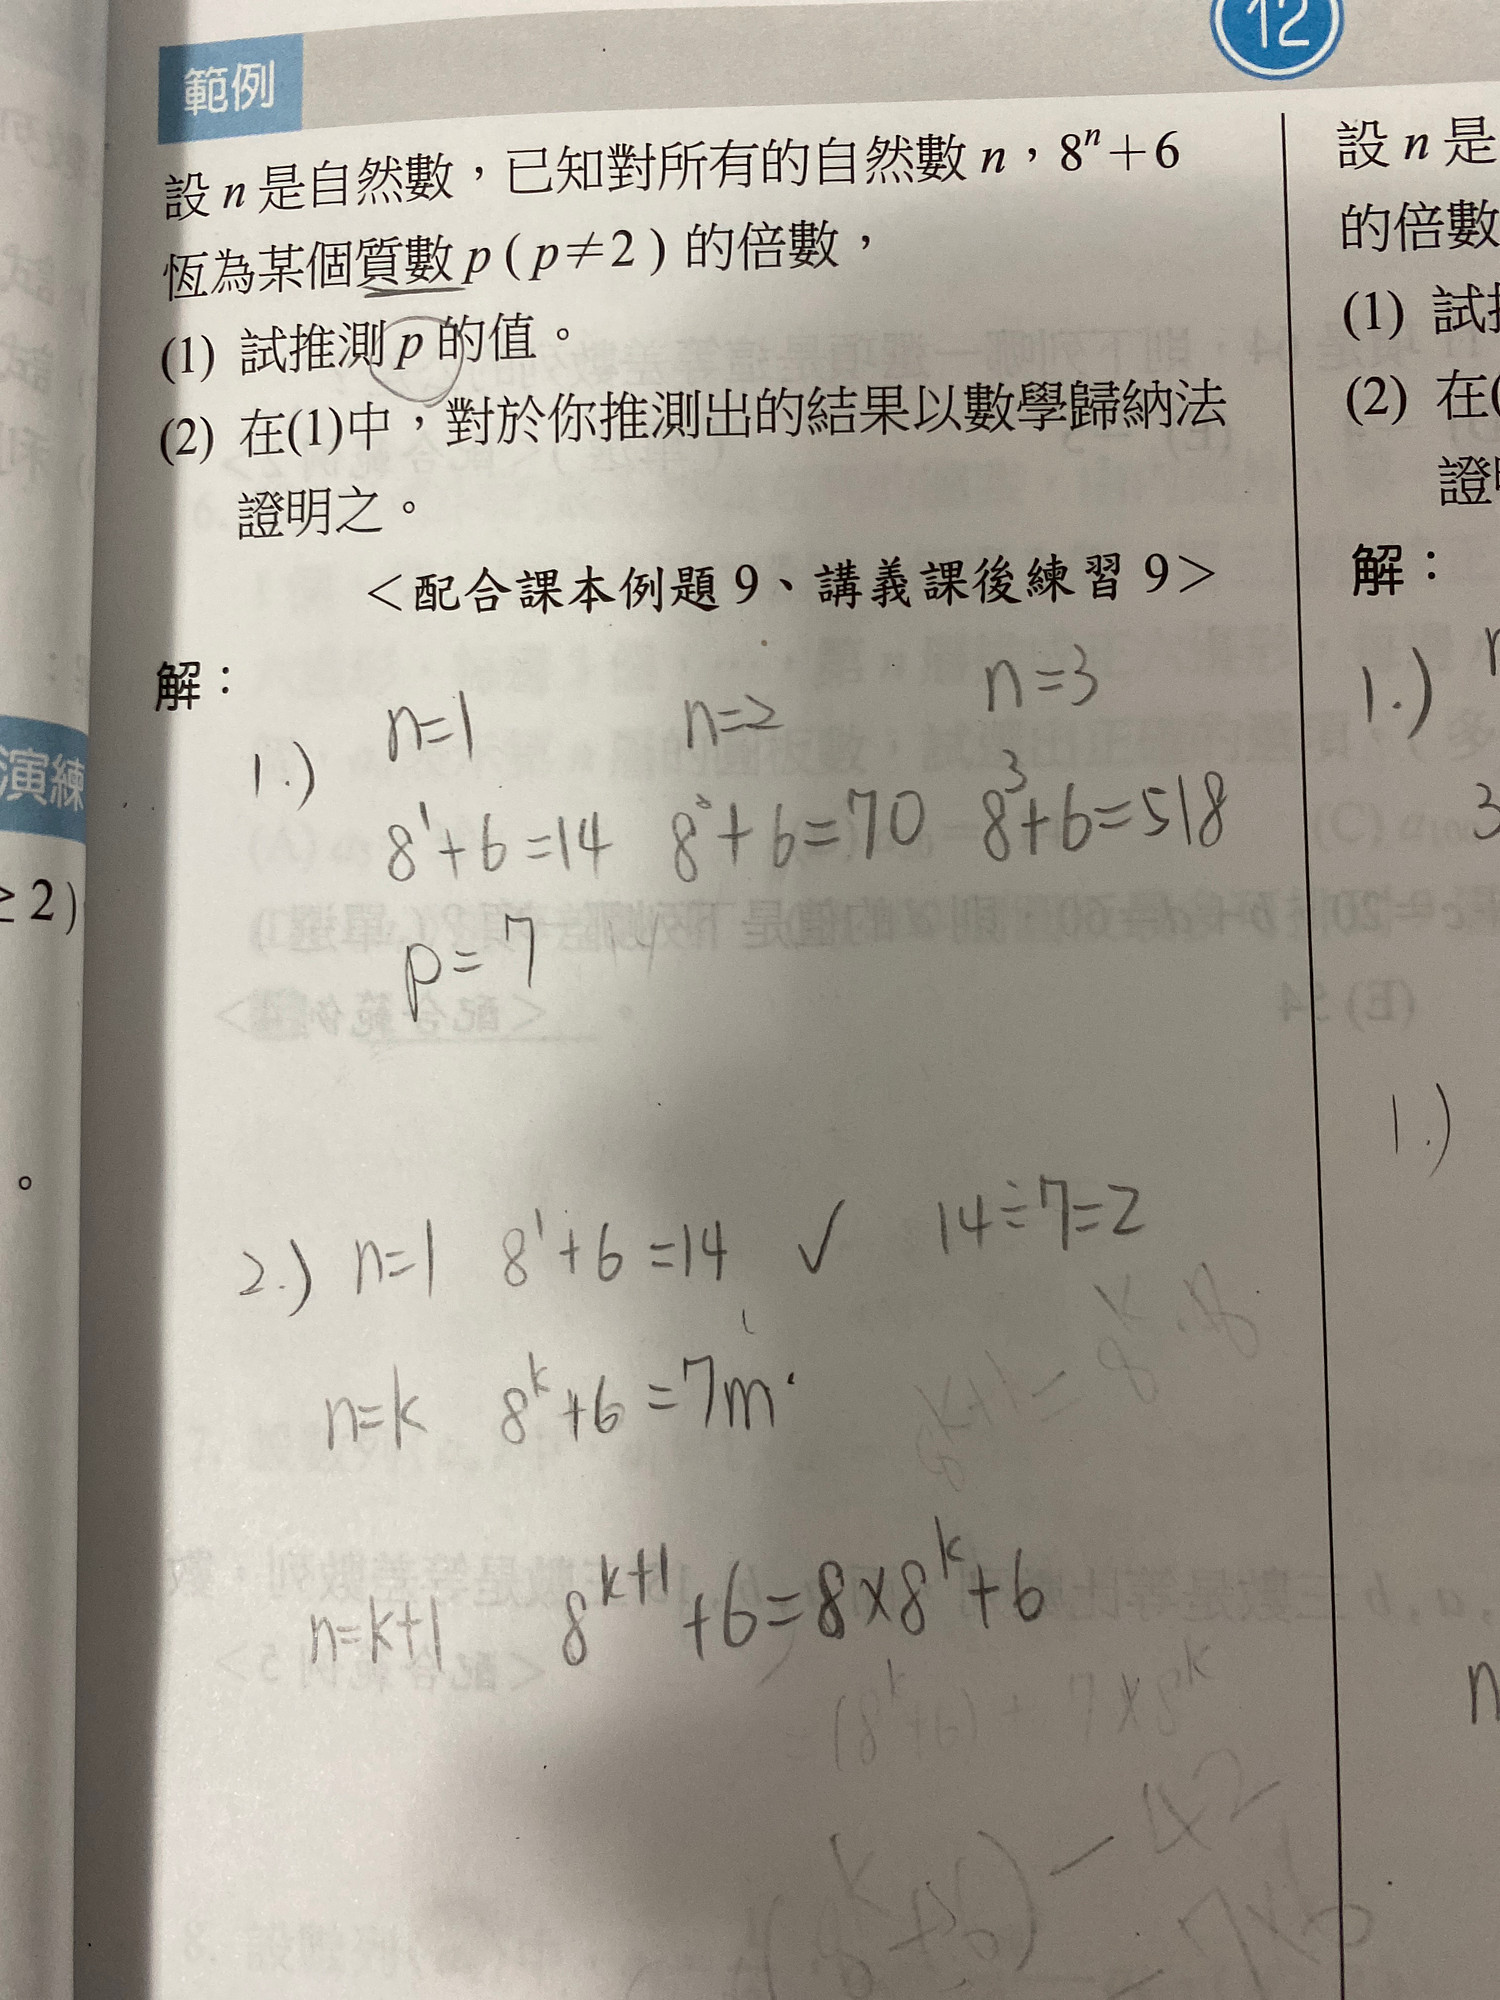 12
範例
設 n 是自然數，已知對所有的自然數 n，8ⁿ＋6
恆為某個質數 p ( p≠2 ) 的倍數，
(1) 試推測 p 的值。
(2) 在(1)中，對於你推測出的結果以數學歸納法
證明之。
＜配合課本例題 9、講義課後練習 9＞
解：
1.) n=1 n=2 n=3
8¹+6=14 8²+6=70 8³+6=518
p=7
2.) n=1 8¹+6=14 ✓ 14÷7=2
n=k 8ᵏ+6=7m
8ᵏ⁺¹=8ᵏ·8
n=k+1 8ᵏ⁺¹+6=8×8ᵏ+6
(8ᵏ+6)+7×8ᵏ
(8ᵏ+6)-42
7×6
設 n 是
的倍數
(1) 試
(2) 在(
證
解：
1.)
3
1.)
n
演練
≥ 2)
。